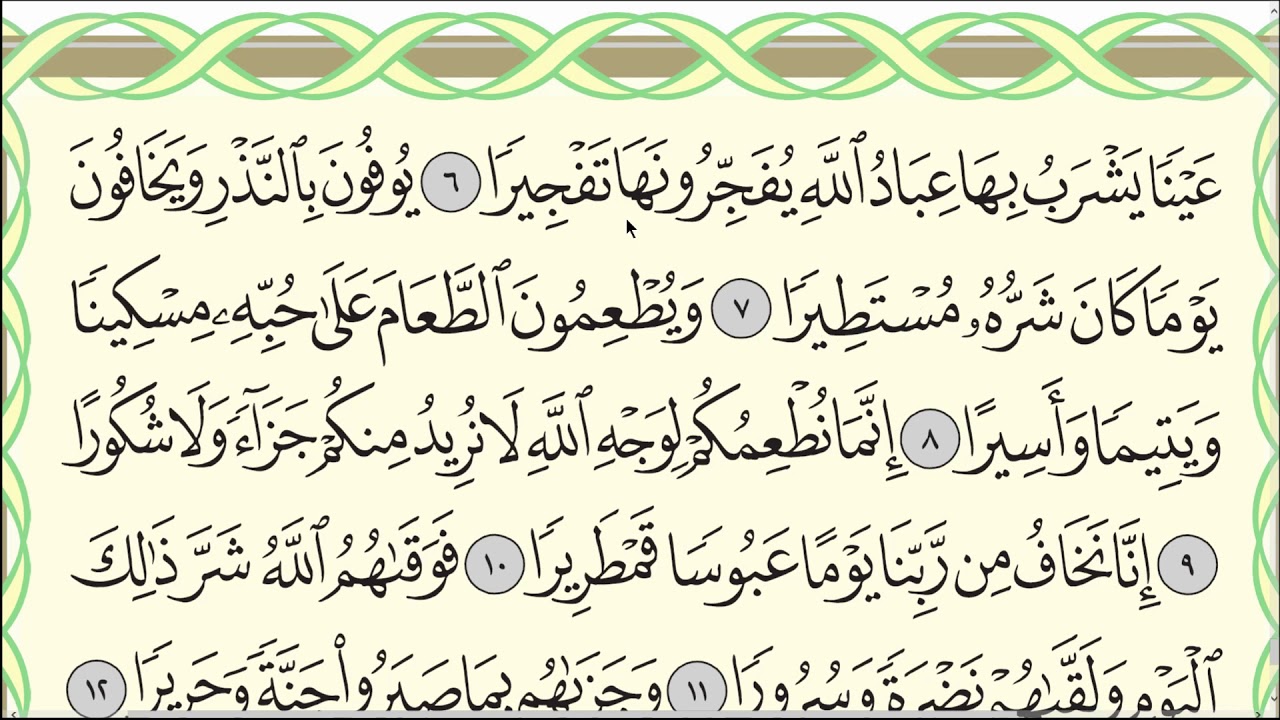 عَيْنًا يَشْرَبُ بِهَا عِبَادُ ٱللَّهِ يُفَجِّرُونَهَا تَفْجِيرًا ٦ يُوفُونَ بِٱلنَّذْرِ وَيَخَافُونَ
يَوْمًا كَانَ شَرُّهُۥ مُسْتَطِيرًا ٧ وَيُطْعِمُونَ ٱلطَّعَامَ عَلَىٰ حُبِّهِۦ مِسْكِينًا
وَيَتِيمًا وَأَسِيرًا ٨ إِنَّمَا نُطْعِمُكُمْ لِوَجْهِ ٱللَّهِ لَا نُرِيدُ مِنكُمْ جَزَآءً وَلَا شُكُورًا
٩ إِنَّا نَخَافُ مِن رَّبِّنَا يَوْمًا عَبُوسًا قَمْطَرِيرًا ١٠ فَوَقَىٰهُمُ ٱللَّهُ شَرَّ ذَٰلِكَ
ٱلْيَوْمِ وَلَقَّىٰهُمْ نَضْرَةً وَسُرُورًا ١١ وَجَزَىٰهُم بِمَا صَبَرُوا۟ جَنَّةً وَحَرِيرًا ١٢